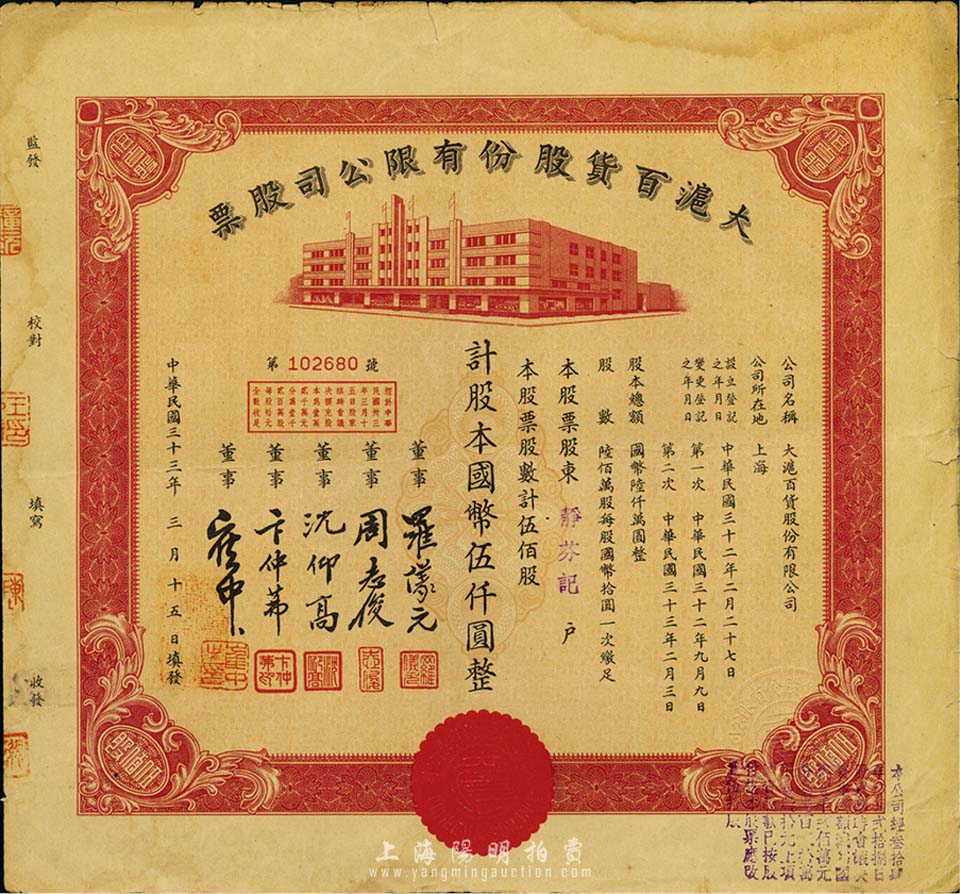 大滬百貨股份有限公司股票
公司名稱 大滬百貨股份有限公司
公司所在地 上海
設立登記之年月日 中華民國三十二年二月二十七日
變更登記之年月日 第一次 中華民國三十二年九月九日
第二次 中華民國三十三年二月三日
股本總額 國幣陸仟萬圓整
股數 陸佰萬股每股國幣拾圓一次繳足
本股票股東 靜芬記 戶
本股票股數計伍佰股
計股本國幣伍仟圓整
第 102680 號
經於中華
民國卅三
年三月十
五日股東
臨時會議
決增充股
本為壹萬
貳千萬元
分為壹千
貳百萬股
每股拾元
全數收足
董事 羅儀元
董事 周志俊
董事 沈仰高
董事 卞仲茀
董事
中華民國三十三年 三月十五日填發
監發
校對
填寫
收發
本公司經叁拾肆
上海陽明拍賣
www.yangmingauction.com